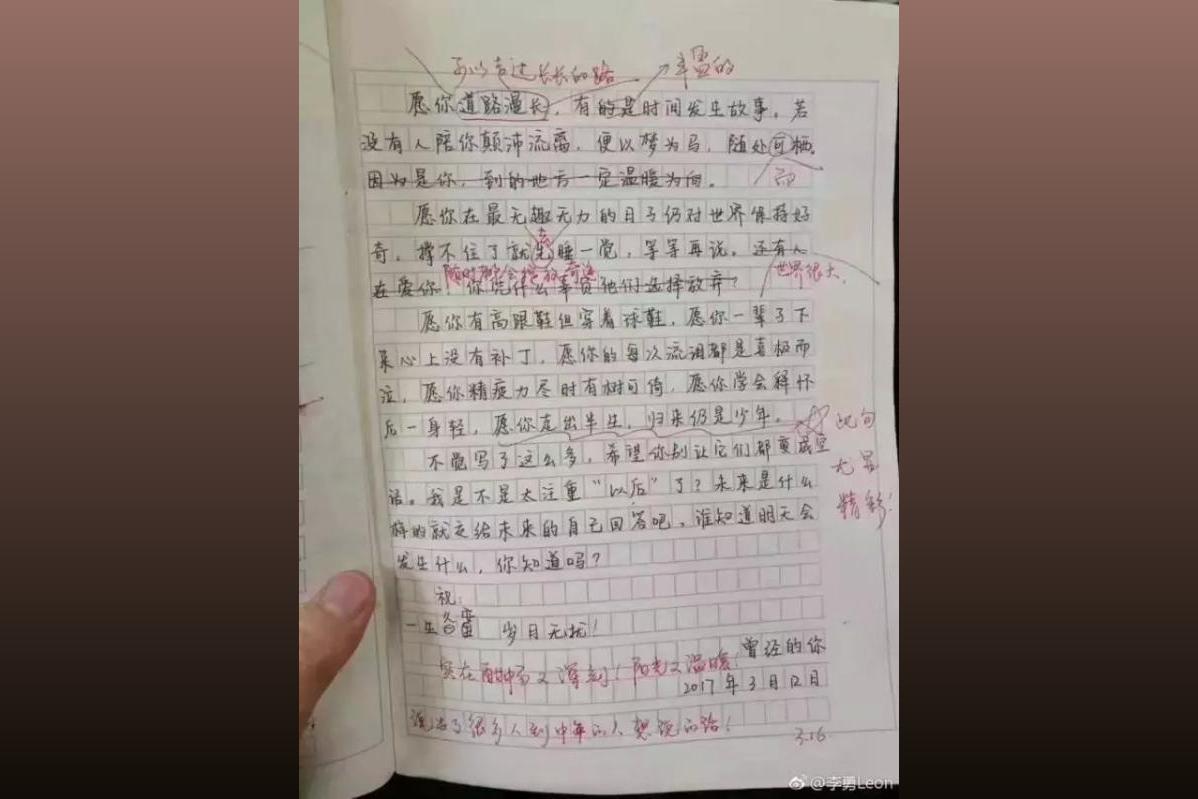 可以走过长长的路
丰富的
愿你道路漫长，有的是时间发生故事。若
没有人陪你颠沛流离，便以梦为马，随处可栖。
因为是你，到的地方一定温暖为向。
而
愿你在最无趣无力的日子仍对世界保持好
奇，撑不住了就先睡一觉，等等再说。还有人
去
随时都会播放奇迹
世界很大，
在爱你，你凭什么辜负他们选择放弃？
愿你有高跟鞋但穿着球鞋，愿你一辈子下
来心上没有补丁，愿你的每次流泪都是喜极而
泣，愿你精疲力尽时有树可倚，愿你学会释怀
后一身轻，愿你走出半生，归来仍是少年。
此句
尤显
精彩！
不觉写了这么多，希望你别让它们都变成空
话。我是不是太注重“以后”了？未来是什么
样的就交给未来的自己回答吧，谁知道明天会
发生什么，你知道吗？
祝：
一生 岁月无扰！
曾经的你
实在酣畅又深刻！阳光又温暖！
2017年3月12日
说出了很多人到中年的人想说的话！
3.16
@李勇Leon